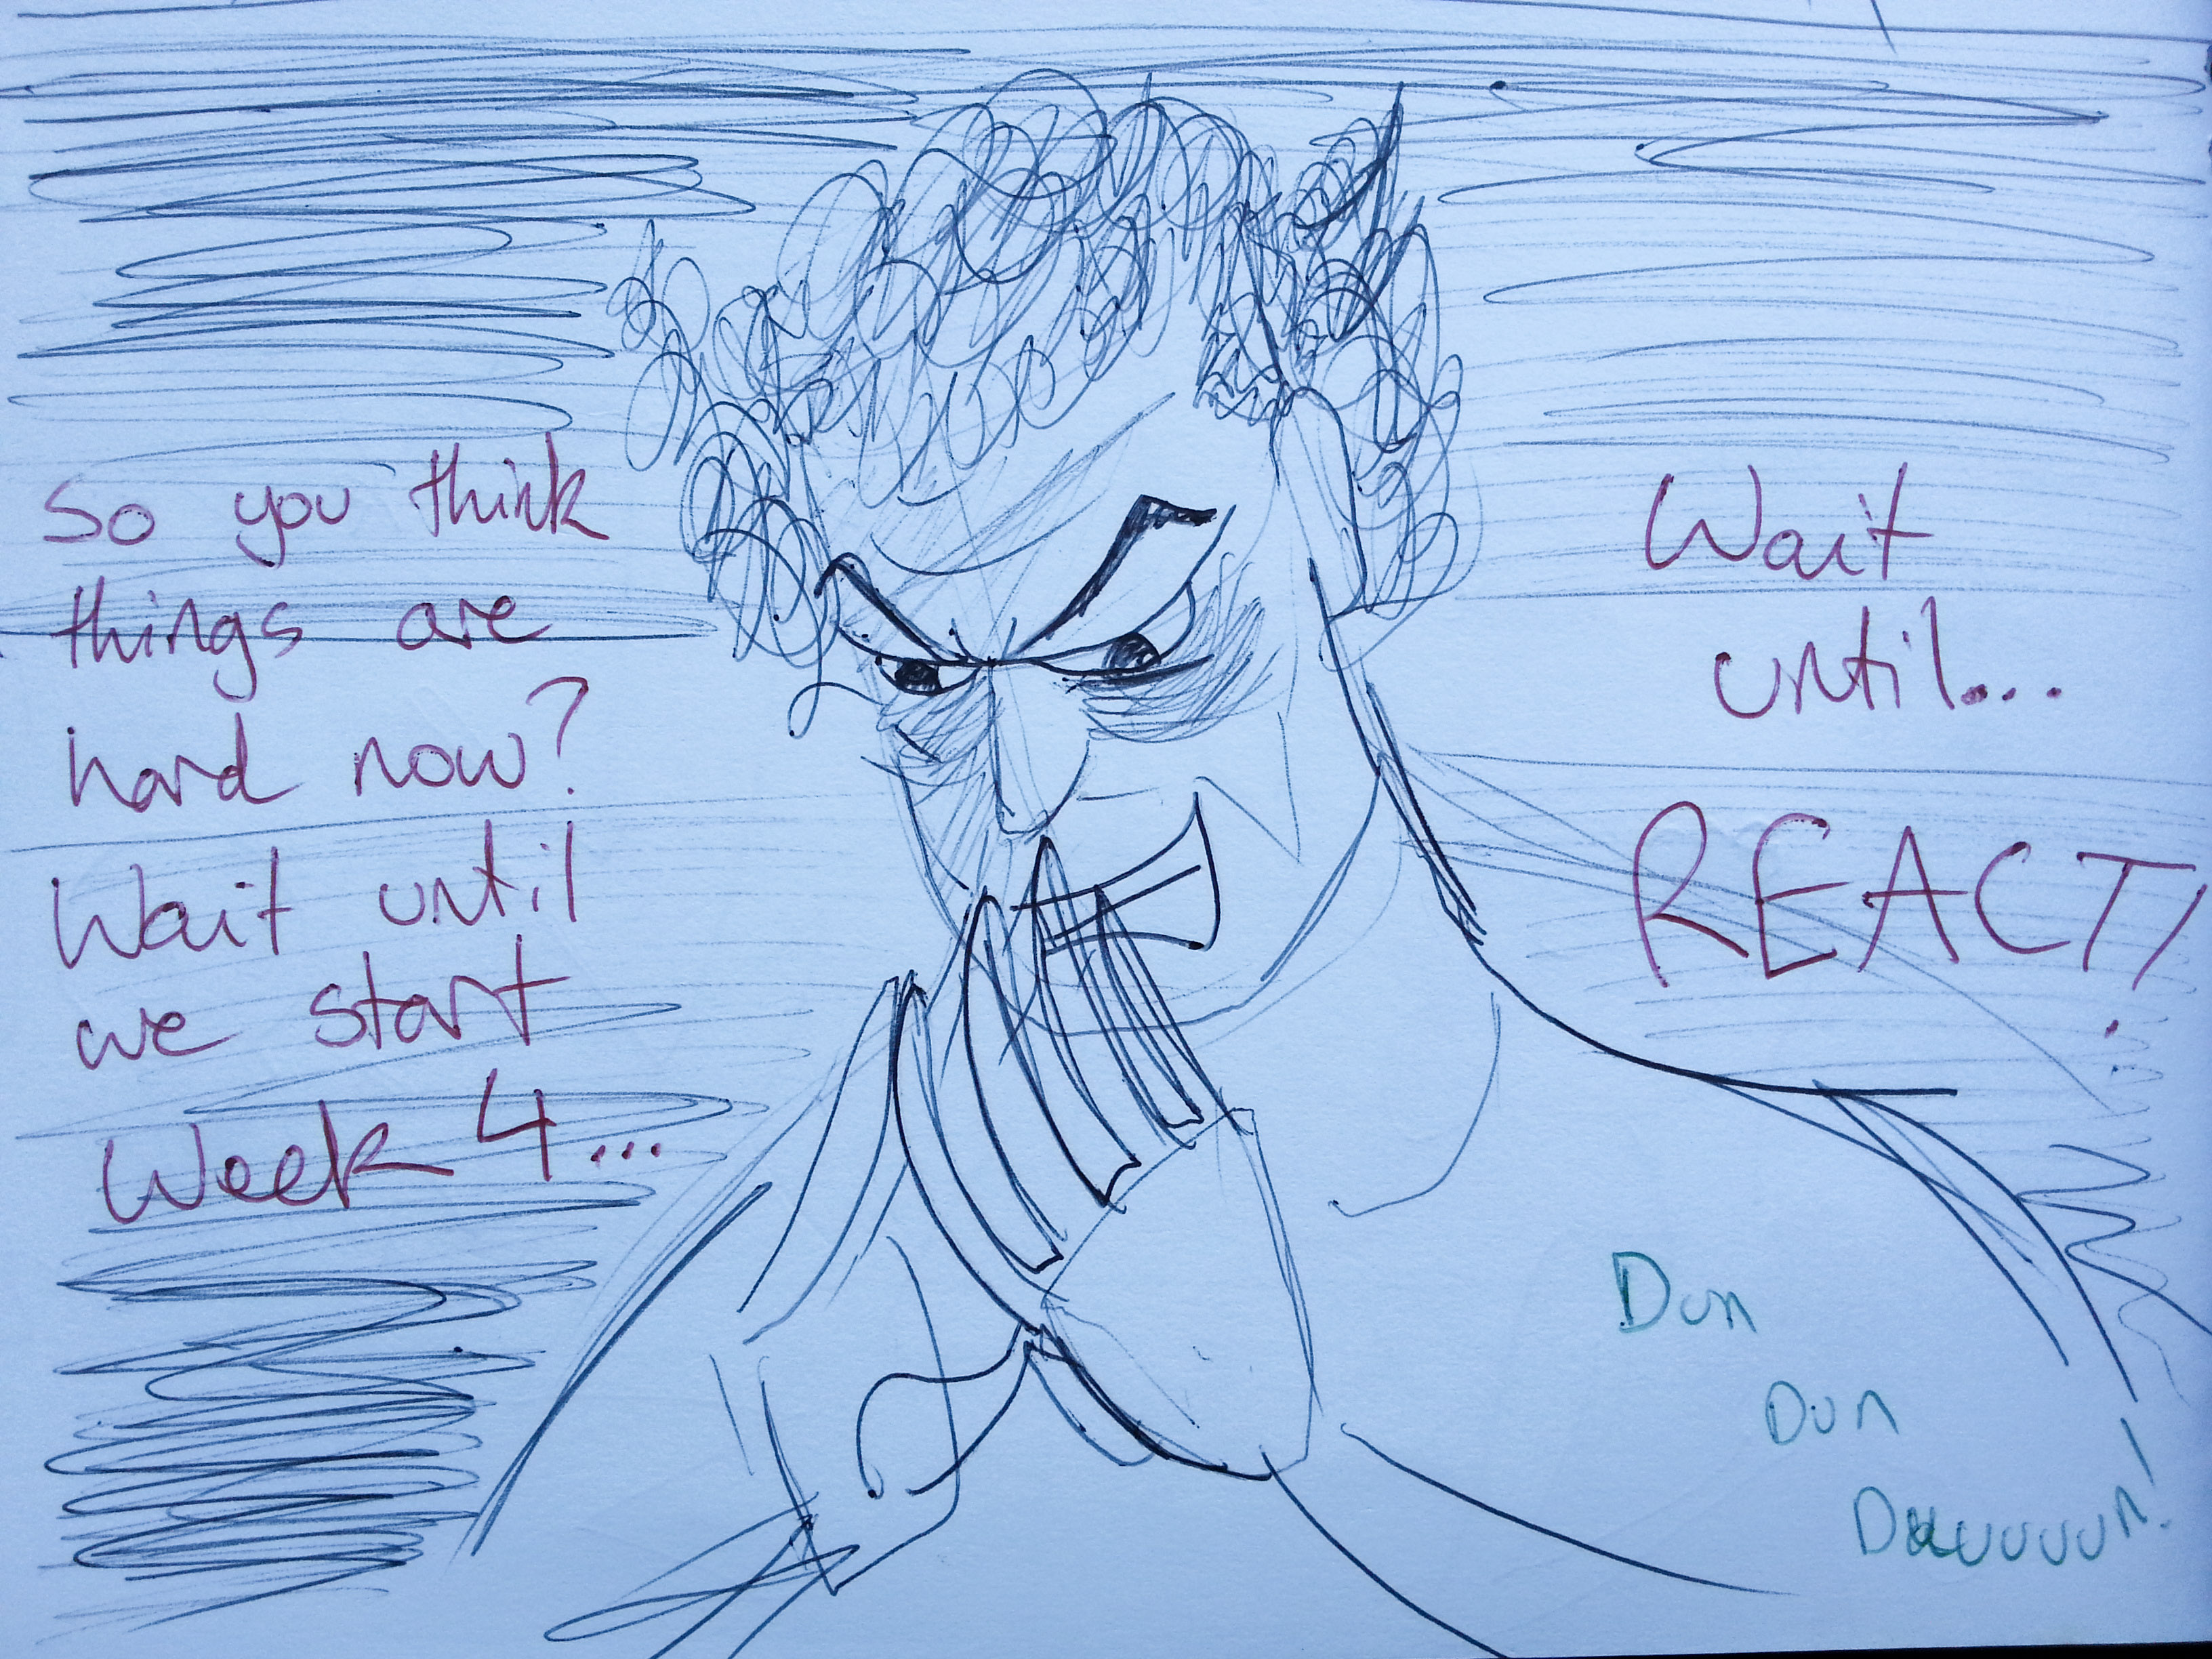 So you think
things are
hard now?
Wait until
we start
Week 4...
Wait
until...
REACT!
Dun
Dun
Duuuuuun!